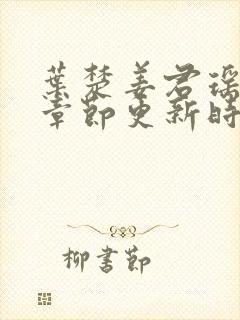 葉楚姜君瑶
章節更新時
柳書節